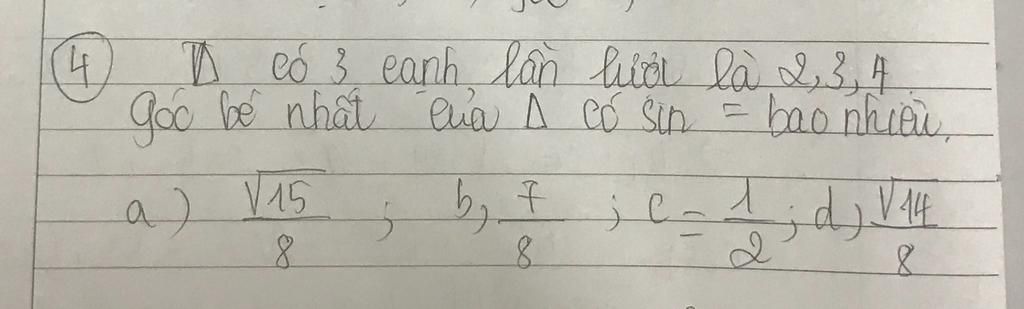 ④ Δ có 3 cạnh lần lượt là 2, 3, 4
góc bé nhất của Δ có sin = bao nhiêu.
a) √15/8 ; b, 7/8 ; c = 1/2 ; d, √14/8